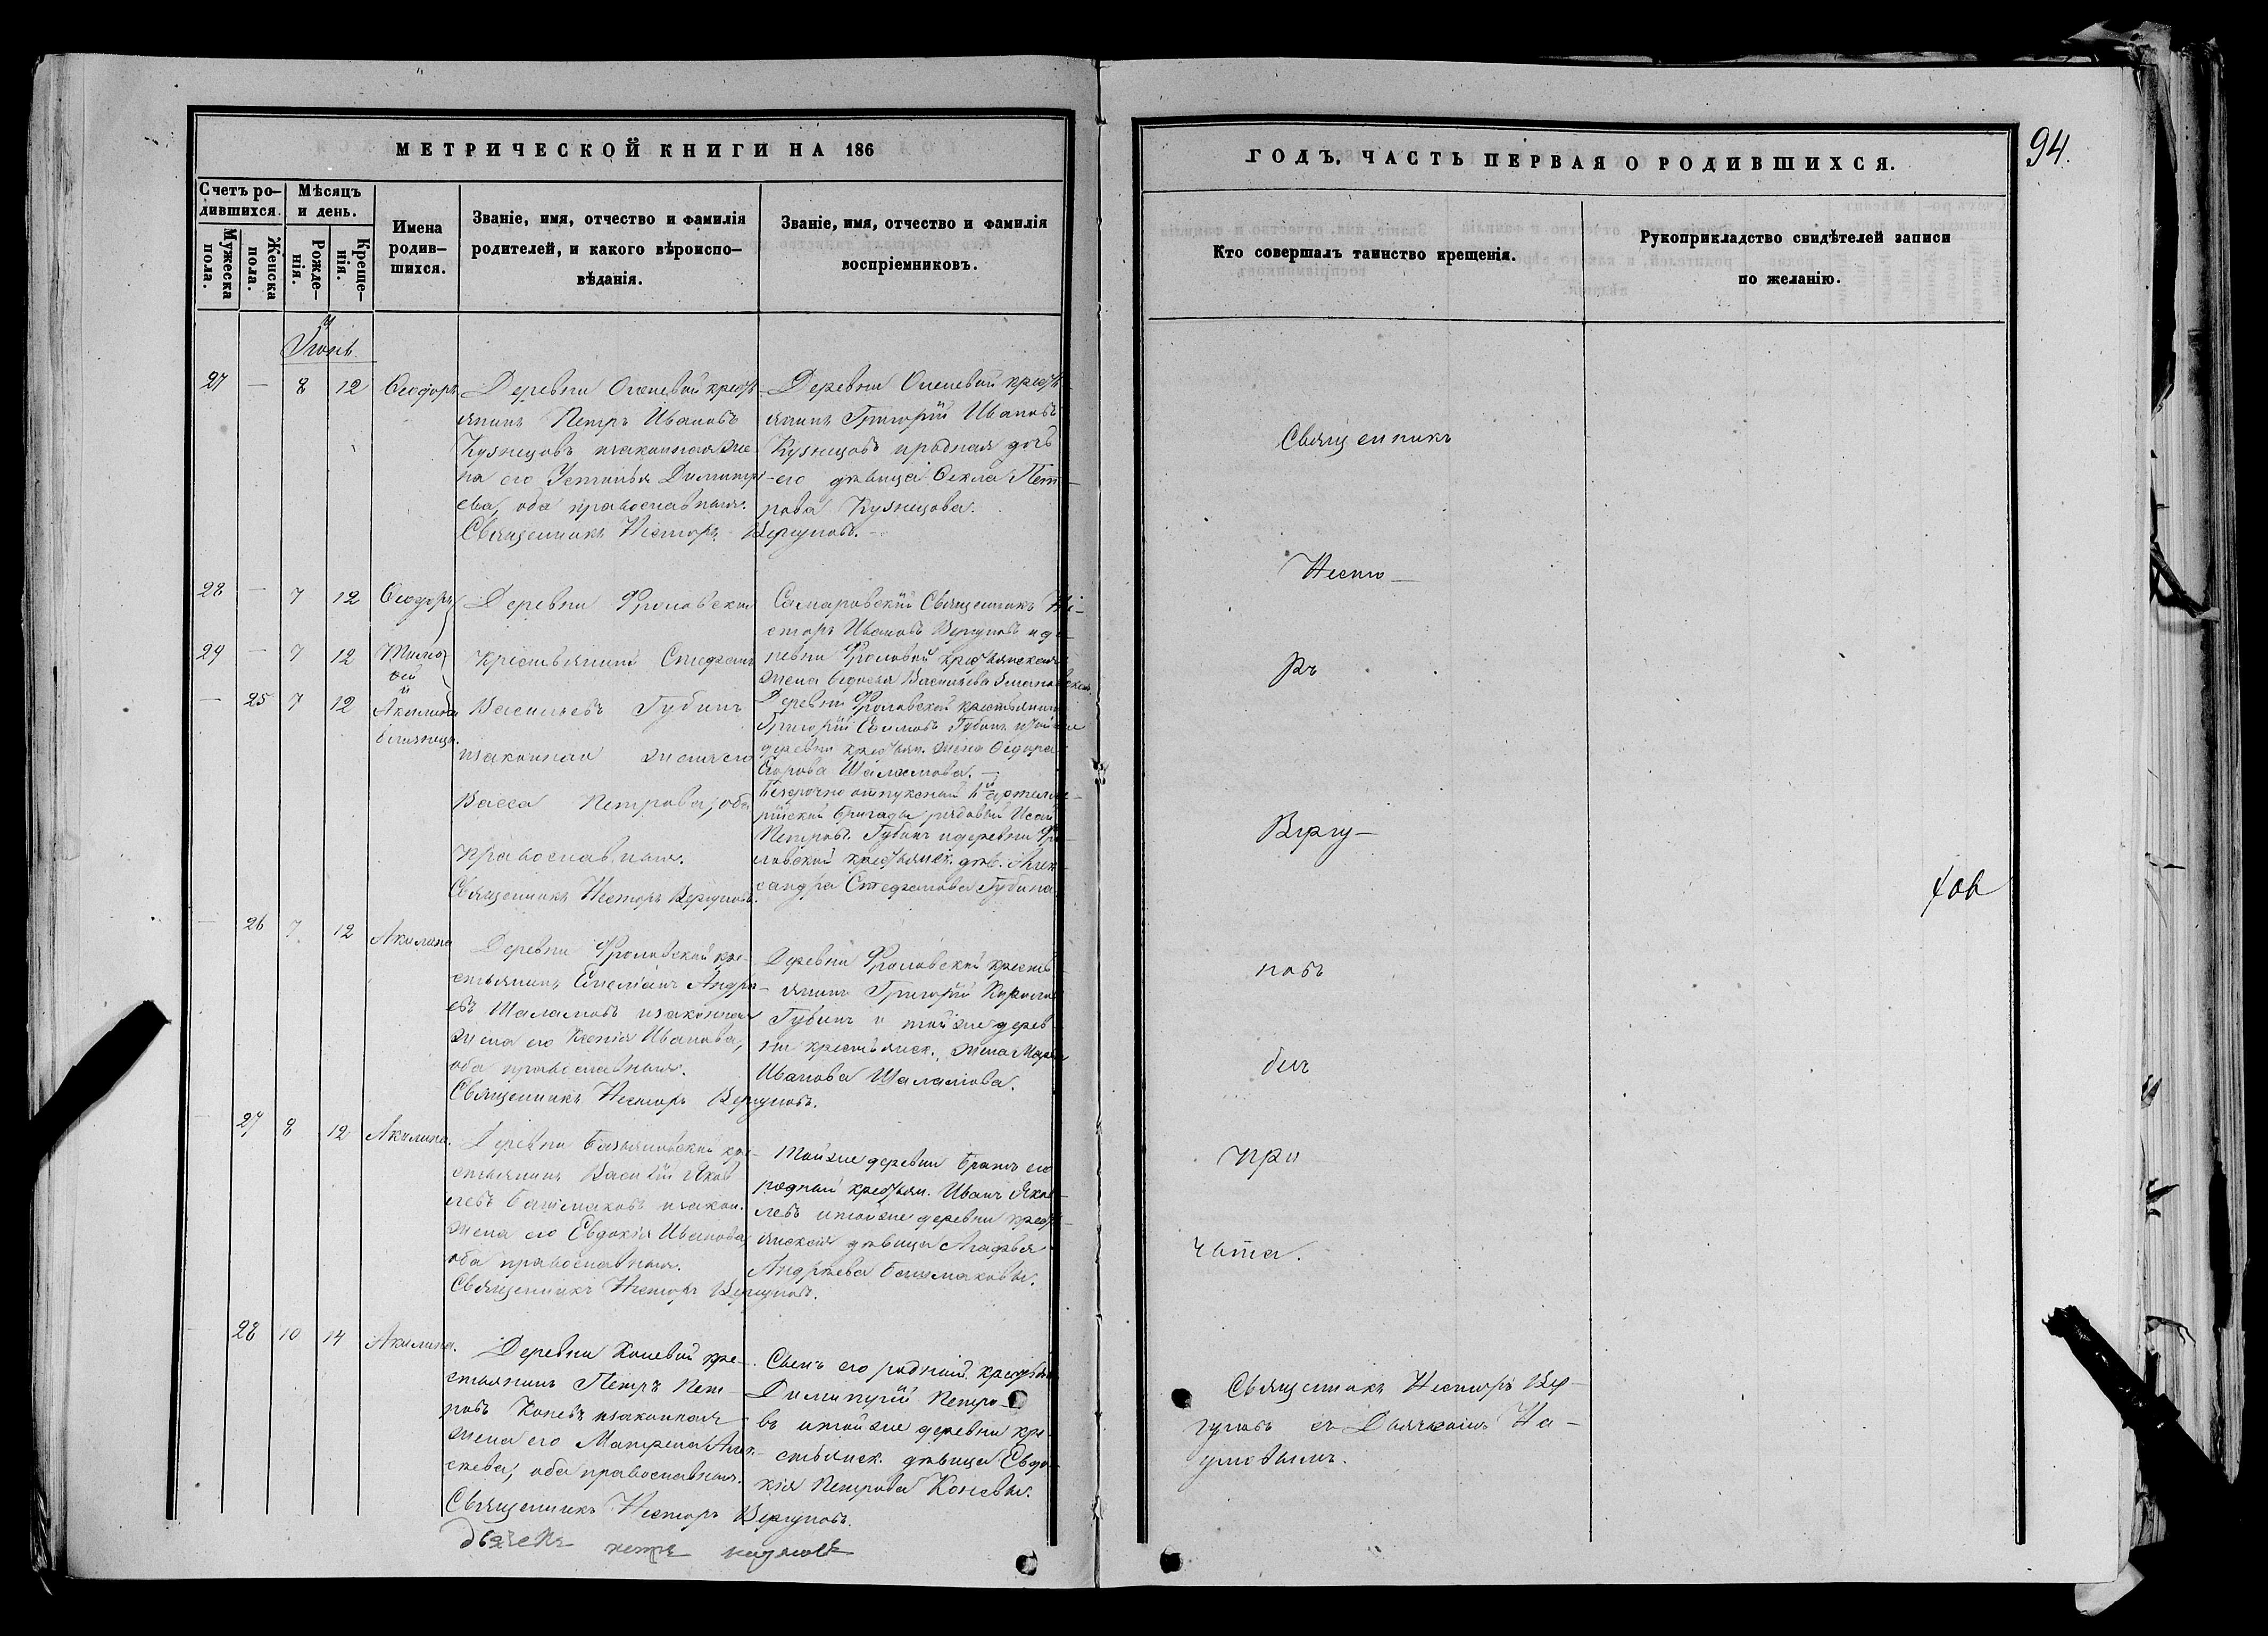 МЕТРИЧЕСКОЙ КНИГИ НА 186
Счетъ ро-
дившихся.
Мужеска
пола.
Женска
пола.
Мѣсяцъ
и день.
Рожде-
нія.
Креще-
нія.
Имена
родив-
шихся.
Званіе, имя, отчество и фамилія
родителей, и какого вѣроиспо-
вѣданія.
Званіе, имя, отчество и фамилія
воспріемниковъ.
27 — 8 12 Ѳеодоръ
Деревни крестъ-
янинъ Петръ Ивановъ
Кузнецовъ изаконная же-
на его Устинья Димитрі-
ева, оба православныя.
Священникъ Несторъ Вергуновъ.
Деревни крестъ-
янинъ Григорій Ивановъ
Кузнецовъ иродная дочь
его дѣвица Ѳекла Пет-
рова Кузнецова.
28 — 7 12 Ѳеодоръ
29 — 7 12 Тимо-
ѳей
и
— 25 7 12 Акилина
близнецы.
Деревни Фроловской
крестьянинъ Стефанъ
Васильевъ Губинъ
изаконная жена его
Васса Петрова, оба
православныя.
Священникъ Несторъ Вергуновъ.
Самаровскій Священникъ Не-
сторъ Ивановъ Вергуновъ и де-
ревни Фроловой крестьянская
жена Ѳедосья Васильева
Деревни Фроловской крестьянинъ
Григорій Губинъ итойже
деревни крестьян. жена Ѳедора
Шаламова.
Безсрочно отпускной артилле-
рійской бригады рядовый Исай
Петровъ Губинъ идеревни Фро-
ловской крестьянск. дѣв. Алек-
сандра Стефанова Губина.
— 26 7 12 Акилина
Деревни Фроловской кре-
стьянинъ Емеліанъ Андре-
евъ Шаламовъ изаконная
жена его Ксенія Иванова,
оба православныя.
Священникъ Несторъ Вергуновъ.
Деревни Фроловской кресть-
янинъ Григорій Кириловъ
Губинъ и тойже дерев-
ни крестьянск. жена Марья
Иванова Шаламова.
— 27 8 12 Акилина.
Деревни Базьяновской кре-
стьянинъ Василій Яков-
левъ Башмаковъ изакон.
жена его Евдокія Иванова,
оба православныя.
Священникъ Несторъ Вергуновъ.
Тойже деревни братъ его
родный крестьян. Иванъ Яков-
левъ итойже деревни кресть-
янская дѣвица Агафья
Андреева Башмаковы.
— 28 10 14 Акилина.
Деревни Коневой кре-
стьянинъ Петръ Пет-
ровъ Коневъ изаконная
жена его Матрена Алек-
сѣева, оба православныя.
Священникъ Несторъ Вергуновъ.
Сынъ его родный крестьян.
Димитрій Петро-
въ итойже деревни кре-
стьянск. дѣвица Евдо-
кія Петрова Коневы.
дьячекъ петръ наумовъ
ГОДЪ, ЧАСТЬ ПЕРВАЯ О РОДИВШИХСЯ.
94.
Кто совершалъ таинство крещенія.
Рукоприкладство свидѣтелей записи
по желанію.
Священникъ
Несто-
ръ
Вергу-
новъ
безъ
при
чта.
Священникъ Несторъ Вер-
гуновъ съ Дьячкомъ На-
умовымъ.